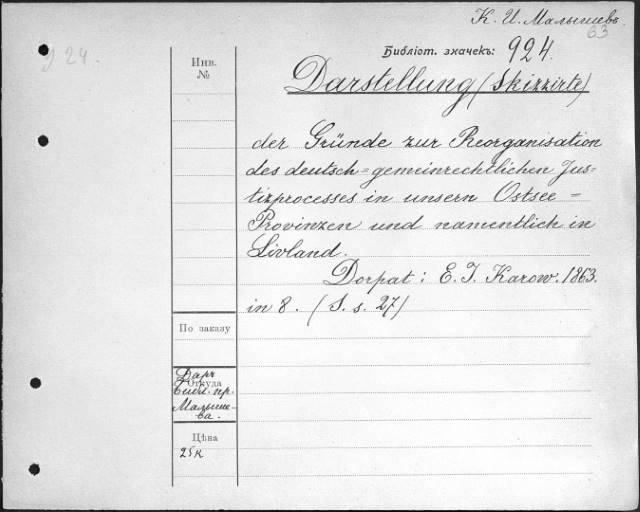 К. И. Малышевъ.
63
924.
Библіот. значекъ: 924.
Инв.
№
Darstellung (Skizzirte)
der Gründe zur Reorganisation
des deutsch=gemeinrechtlichen Jus-
tizprocesses in unsern Ostsee=
Provinzen und namentlich in
Livland.
Dorpat: E. J. Karow. 1863.
in 8. (S. s. 27)
По заказу
Откуда
Даръ
библ. пр.
Малыше-
ва.
Цѣна
25 к